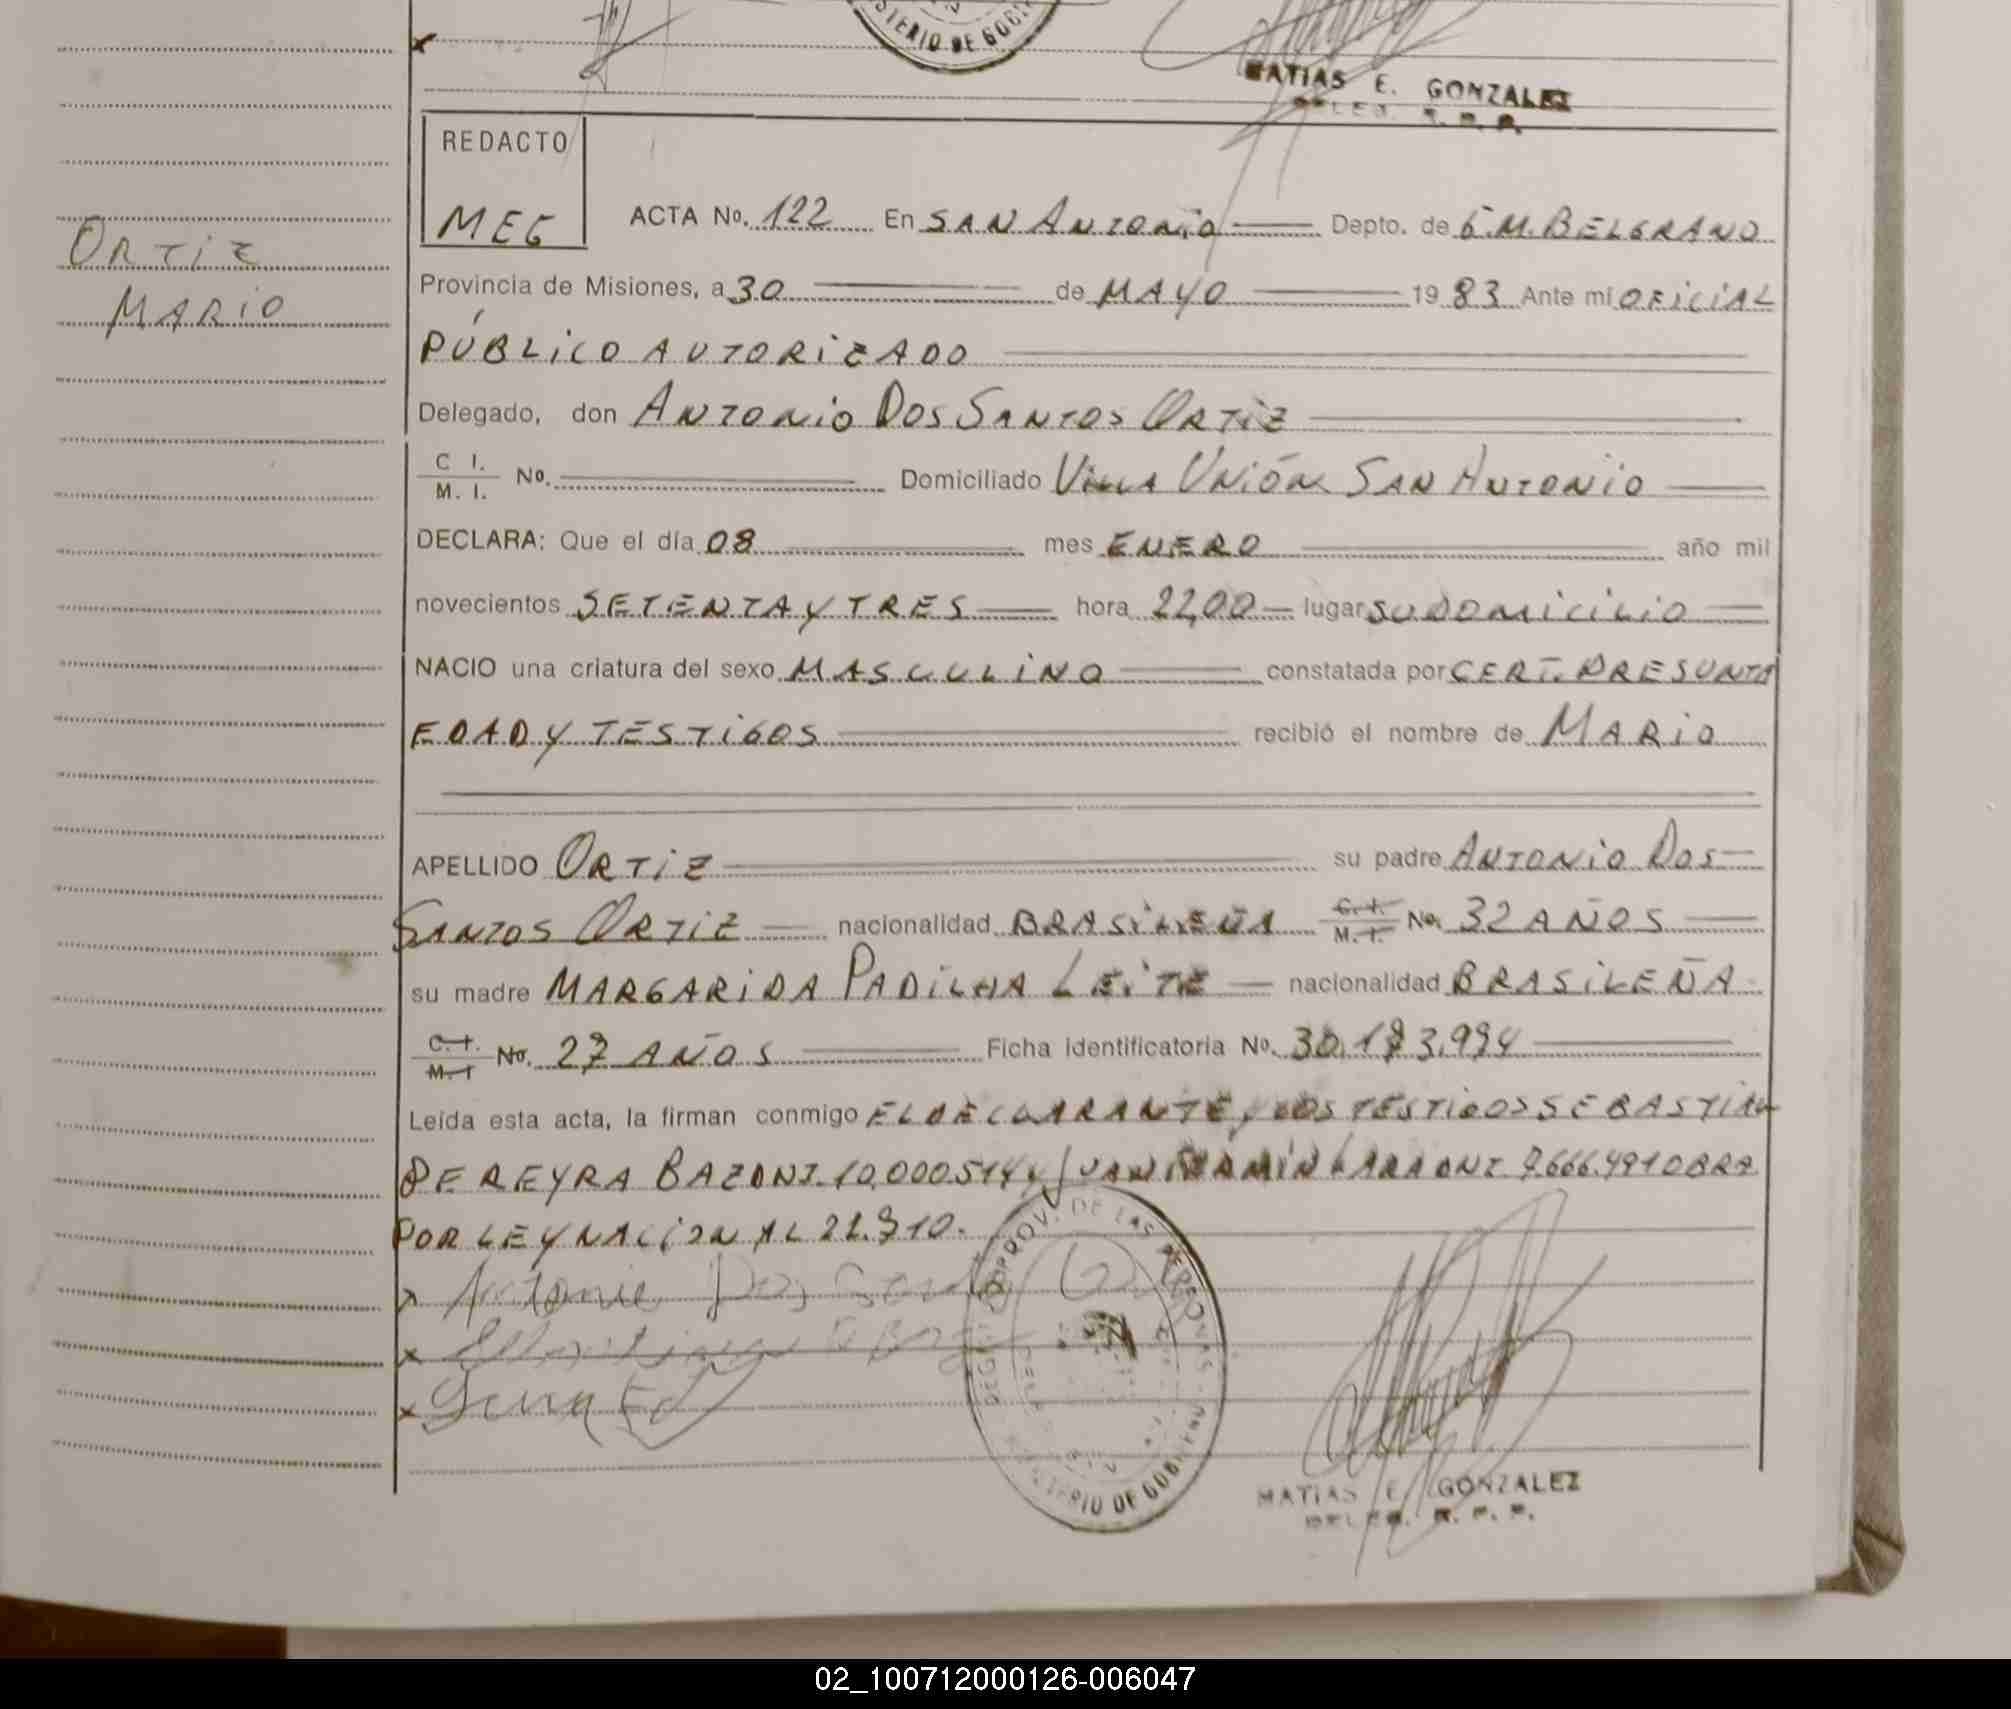 MINISTERIO DE GOBIERNO
MATIAS E. GONZALEZ
DELEG. R. P. P.
REDACTO
MEG
ORTIZ
MARIO
ACTA No. 122 En SAN ANTONIO Depto. de G.M. BELGRANO
Provincia de Misiones, a 30 de MAYO 19 83 Ante mi OFICIAL
PÚBLICO AUTORIZADO
Delegado, don ANTONIO DOS SANTOS ORTIZ
C I. / M. I. No. Domiciliado VILLA UNIÓN SAN ANTONIO
DECLARA: Que el día 08 mes ENERO año mil
novecientos SETENTA Y TRES hora 22,00 lugar SU DOMICILIO
NACIO una criatura del sexo MASCULINO constatada por CERT. PRESUNTA
EDAD Y TESTIGOS recibió el nombre de MARIO
APELLIDO ORTIZ su padre ANTONIO DOS
SANTOS ORTIZ nacionalidad BRASILEÑA C.I. / M.I. No. 32 AÑOS
su madre MARGARIDA PADILHA LEITE nacionalidad BRASILEÑA
C.I. / M.I No. 27 AÑOS Ficha identificatoria No. 30.173.994
Leída esta acta, la firman conmigo EL DECLARANTE, LOS TESTIGOS SEBASTIAN
PEREYRA BAZ DNI. 10,000514 y JUAN LARA DNI 7.666.491 OBRA
POR LEY NACIONAL 22.310.
x Antonio Dos
x
x
REGISTRO PROV. DE LAS PERSONAS
MINISTERIO DE GOBIERNO
MATIAS E. GONZALEZ
DELEG. R. P. P.
02_100712000126-006047